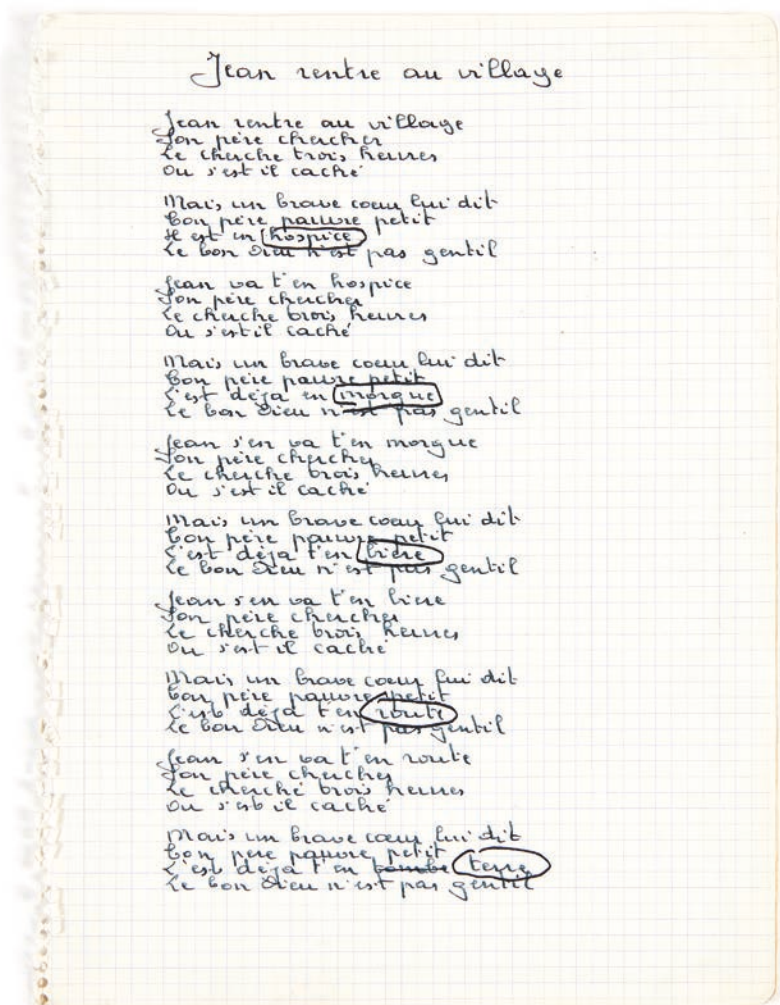 Jean rentre au village
Jean rentre au village
Son père chercher
Le cherche trois heures
Ou s'est il caché
Mais un brave coeur lui dit
Ton père pauvre petit
Il est en hospice
Le bon Dieu n'est pas gentil
Jean va t'en hospice
Son père chercher
Le cherche trois heures
Ou s'est il caché
Mais un brave coeur lui dit
Ton père pauvre petit
L'est déja en morgue
Le bon Dieu n'est pas gentil
Jean s'en va t'en morgue
Son père chercher
Le cherche trois heures
Ou s'est il caché
Mais un brave coeur lui dit
Ton père pauvre petit
L'est déja t'en bière
Le bon Dieu n'est pas gentil
Jean s'en va t'en bière
Son père chercher
Le cherche trois heures
Ou s'est il caché
Mais un brave coeur lui dit
Ton père pauvre petit
L'est déja t'en route
Le bon Dieu n'est pas gentil
Jean s'en va t'en route
Son père chercher
Le cherche trois heures
Ou s'est il caché
Mais un brave coeur lui dit
Ton père pauvre petit
L'est déja t'en tombe terre
Le bon Dieu n'est pas gentil